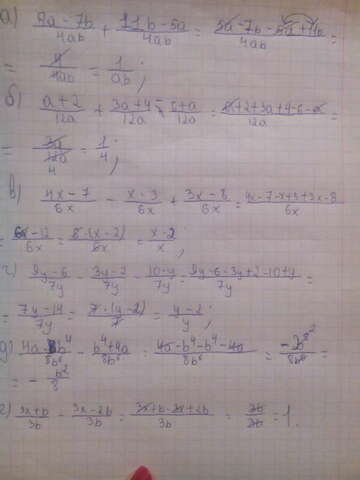 а) (9a - 7b)/4ab + (11b - 5a)/4ab = (9a - 7b - 5a + 11b)/4ab =
= 4/4ab = 1/ab;
б) (a + 2)/12a + (3a + 4)/12a - (6 + a)/12a = (a + 2 + 3a + 4 - 6 - a)/12a =
= 3a/12a = 1/4;
в) (4x - 7)/6x - (x - 3)/6x + (3x - 8)/6x = (4x - 7 - x + 3 + 3x - 8)/6x
= (6x - 12)/6x = 6·(x - 2)/6x = (x - 2)/x;
г) (9y - 6)/7y - (3y - 2)/7y - (10 - y)/7y = (9y - 6 - 3y + 2 - 10 + y)/7y =
= (7y - 14)/7y = 7·(y - 2)/7 = (y - 2)/y;
= - b²/8
е) (3x + b)/3b - (3x - 2b)/3b = (3x + b - 3x + 2b)/3b = 3b/3b = 1.